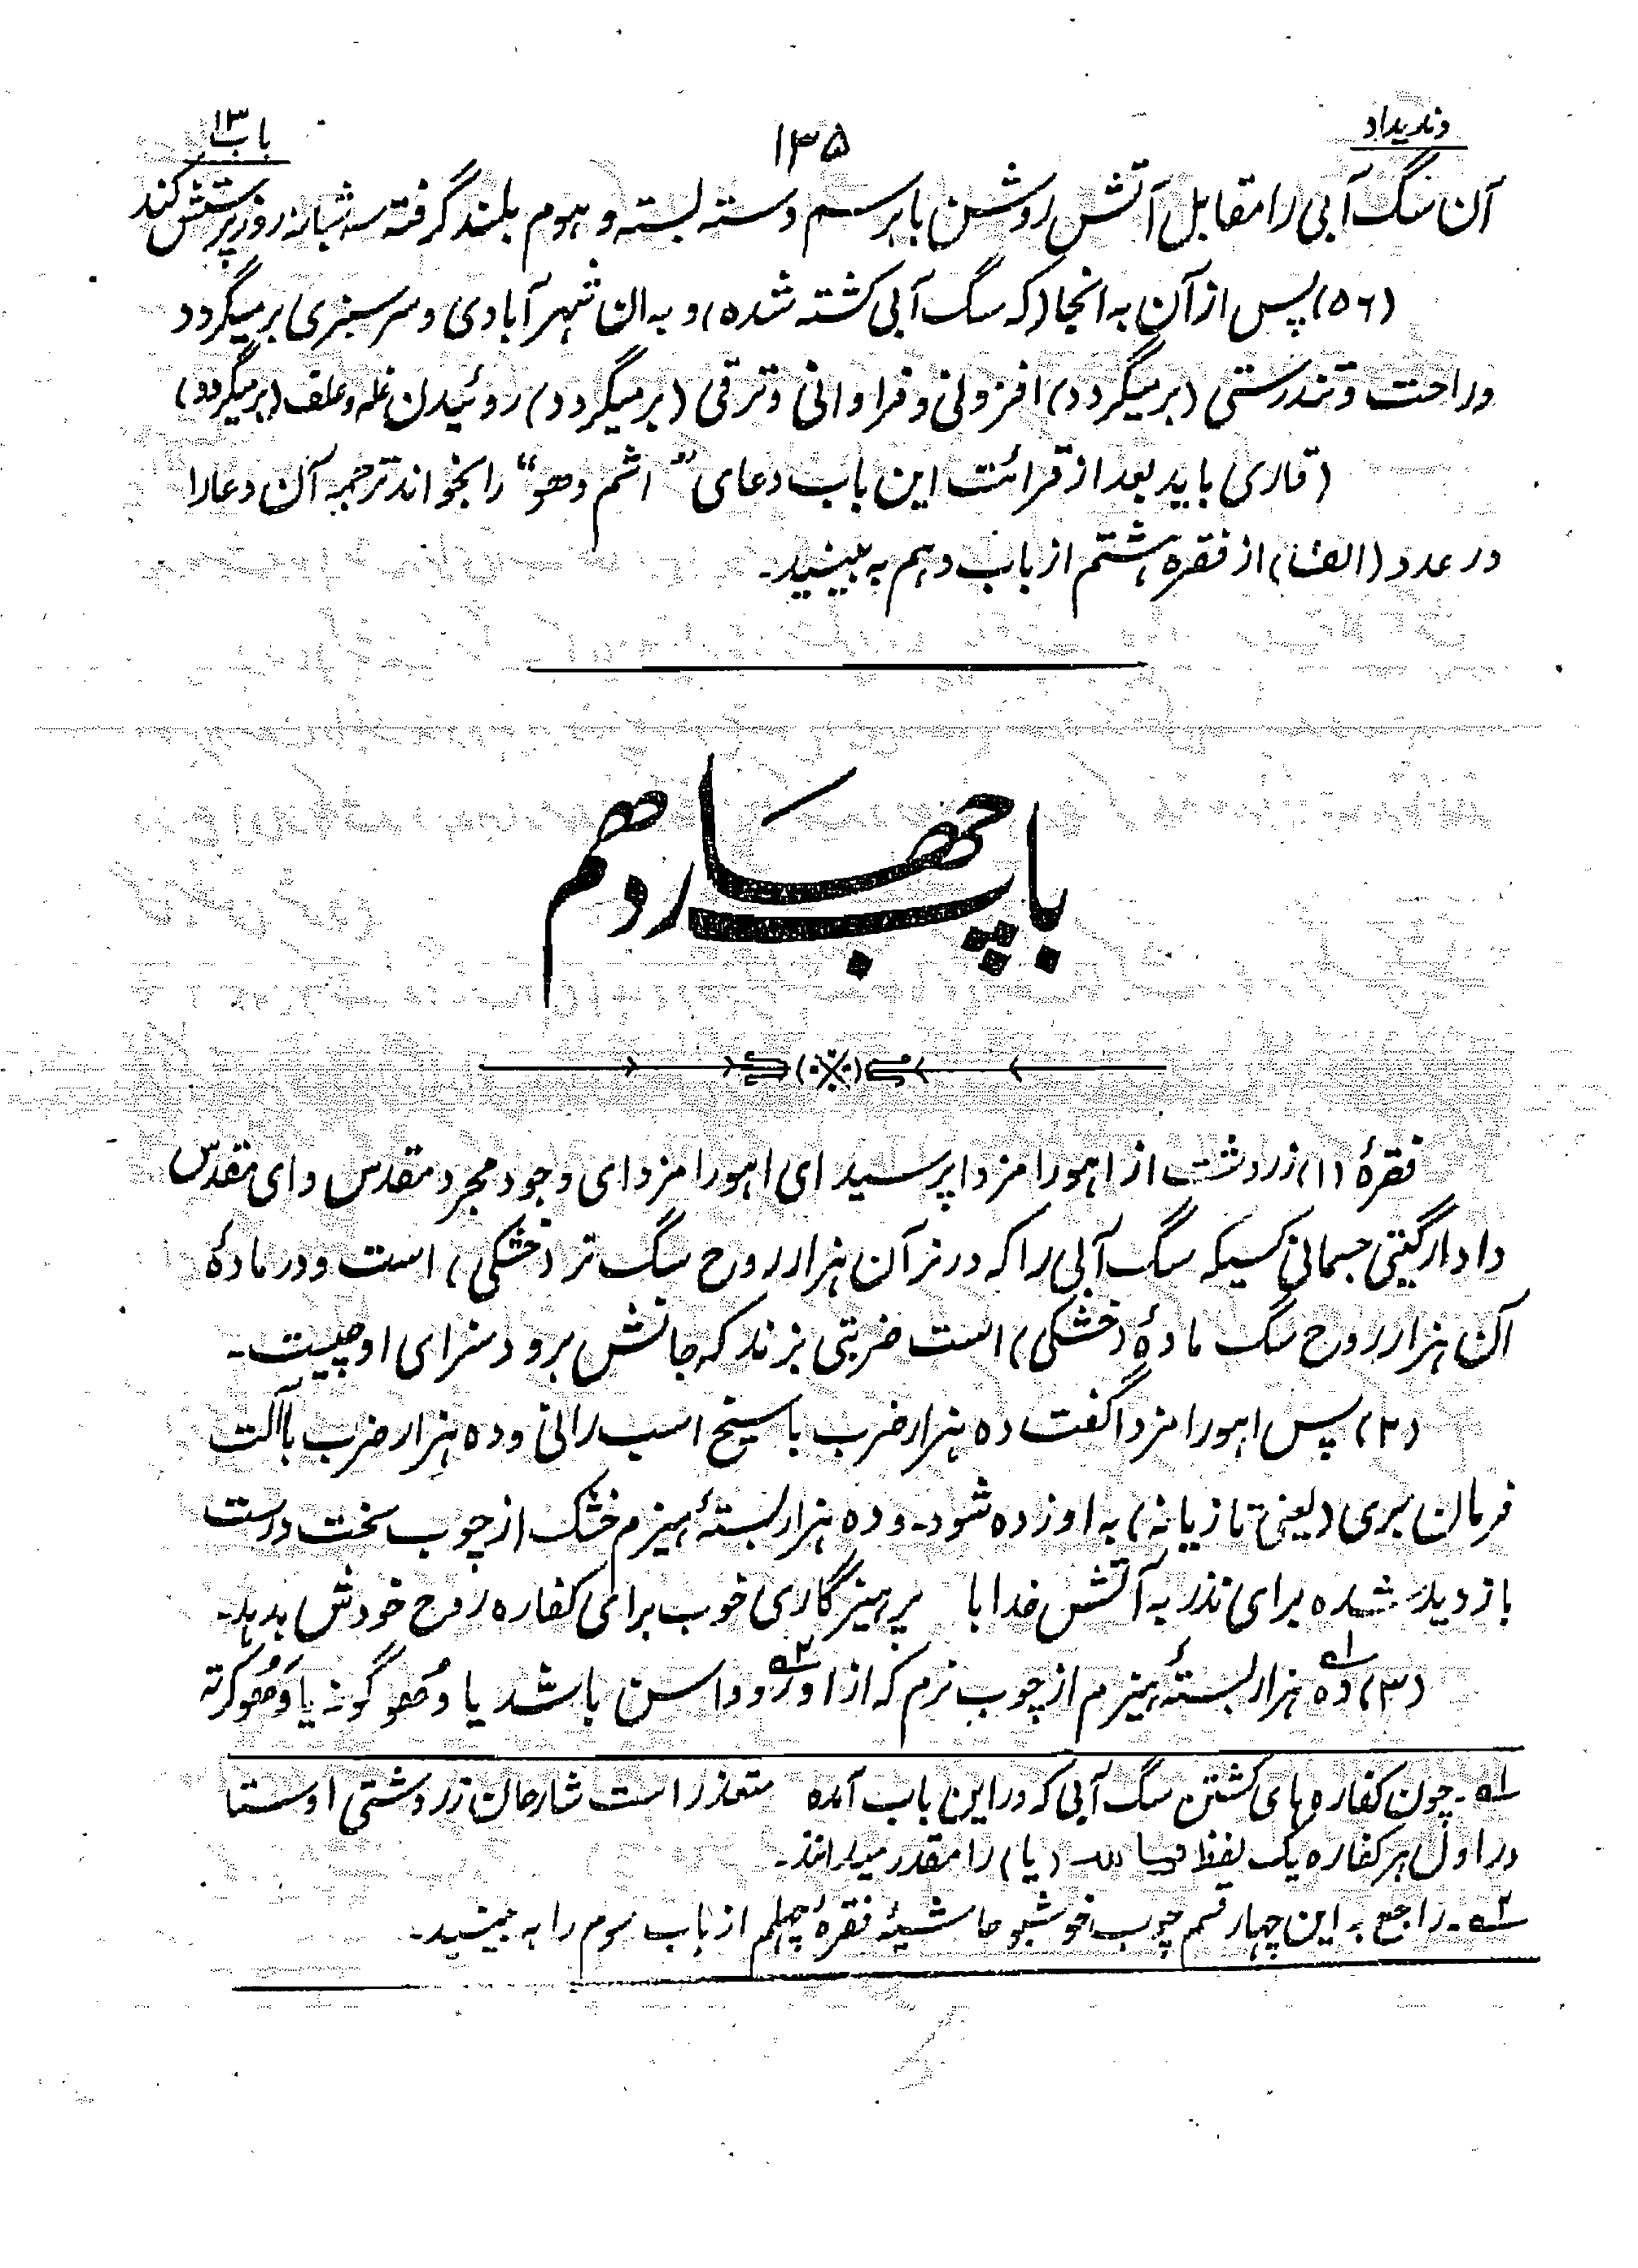 وندیداد
۱۳۵
باب ۱۳
آن سگ آبی را مقابل آتش روشن با برسم دسته بسته و هوم بلند گرفته سه شبانه روز پرستش کند
(۵۶) پس از آن به انجا (که سگ آبی کشته شده) و به ان شهر آبادی و سرسبزی برمیگردد
و راحت و تندرستی (برمیگردد) افزونی و فراوانی و ترقی (برمیگردد) روئیدن غله و علف (برمیگردد)
(قاری باید بعد از قرائت این باب دعای "اشم وهو" را بخواند ترجمه آن دعا را
در عدد (الف) از فقره هشتم از باب دهم به بینید۔
باب چهاردهم
فقرهٔ (۱) زردشت از اهورامزدا پرسید ای اهورامزدا ای وجود مجرد مقدس و ای مقدّس
دادار گیتی جسمانی کسیکه سگ آبی را که در نر آن هزار روح سگ تر (خشکی) است و در مادهٔ
آن هزار روح سگ مادهٔ (خشکی) است ضربتی بزند که جانش برود سزای او چیست۔
(۲) پس اهورامزدا گفت ده هزار ضرب با سیخ اسب رانی و ده هزار ضرب با آلت
فرمان بری (یعنی تازیانه) به او زده شود۔ و ده هزار بستهٔ هیزم خشک از چوب سخت درست
بازدید شده برای نذر به آتش خدا با پرهیزگاری خوب برای کفاره روح خودش بدهد۔
(۳) ده۱ هزار بستهٔ هیزم از چوب نرم که از اوروداسن۲ باشد یا وهوگونه یا وهوکرته
۱ه۔ چون کفاره های کشتن سگ آبی که در این باب آمده متعذر است شارحان زردشتی اوستا
در اول هر کفاره یک لفظ (یا) را مقدر میدانند۔
۲ه۔ راجع به این چهار قسم چوب خوشبو حاشیهٔ فقرهٔ چهلم از باب سوم را به بینید۔